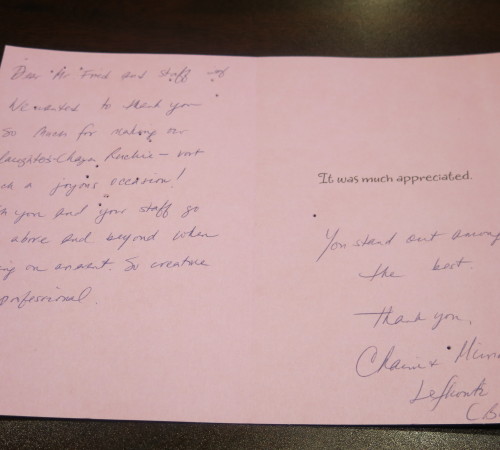 Dear Mr Fried and staff
We wanted to thank you
so much for making our
daughter - Chaya Ruchie -
a joyous occasion!
you and your staff go
above and beyond when
on an event. So creative
professional.
It was much appreciated.
You stand out among
the best.
Thank you,
Chaim &